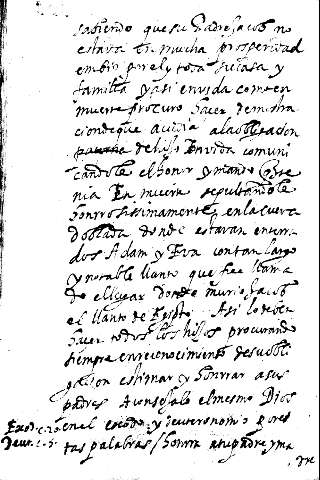 sabiendo que su padre Jacob no
estava en mucha prosperidad
embio por el y toda su casa y
familia y asi en vida como en
muerte procuro hacer demostra
cion de que acudia a la obligacion
de hijo en vida comuni
candole el honor y mando que te
nia en muerte sepultandole
honrrosissimamente en la cueva
doblada donde estavan enterra
dos Adam y Eva con tan largo
y notable llanto que fue llama
do el lugar donde murio Jacob
el llanto de Egipto. Asi lo deben
hacer todos los hijos procurando
siempre en reconocimiento de su obli
gacion estimar y honrrar a sus
padres Aconsejalo el mesmo Dios
Exod. c. 20 en el exodo y deuteronomio por es
Deut. c. 5 tas palabras / honrra a tu padre y ma
dre